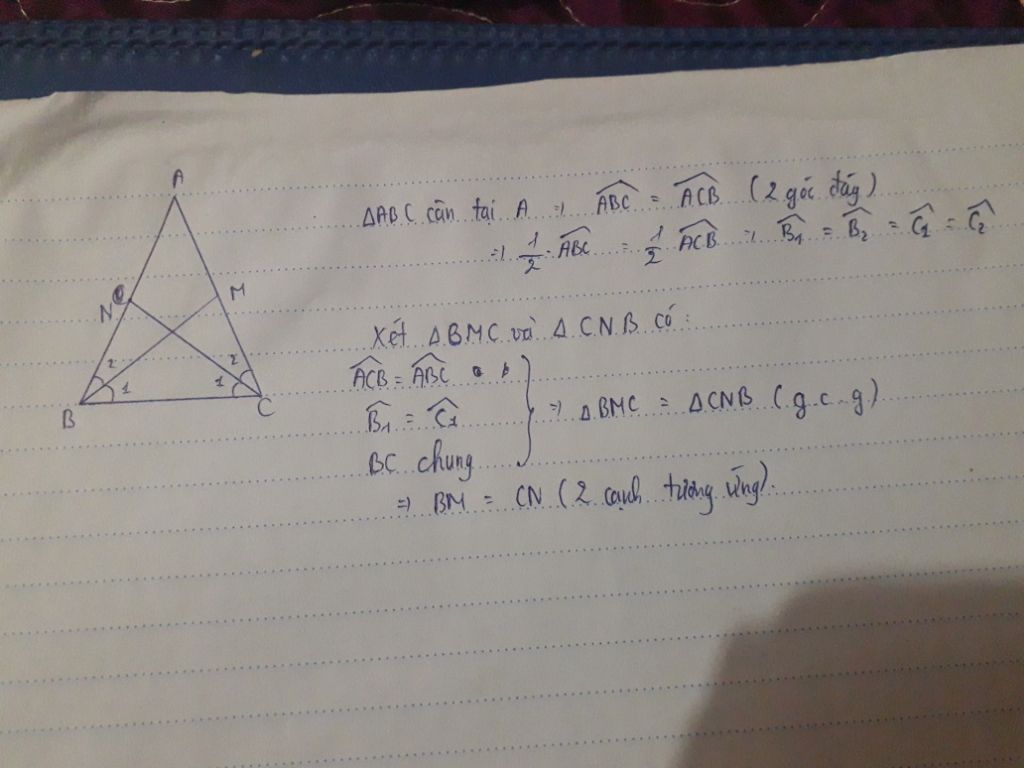 A
ΔABC cân tại A => \widehat{ABC} = \widehat{ACB} (2 góc đáy)
=> \frac{1}{2}.\widehat{ABC} = \frac{1}{2} \widehat{ACB} => \widehat{B_1} = \widehat{B_2} = \widehat{C_1} = \widehat{C_2}
N M
Xét ΔBMC và ΔCNB có:
2 2
1 1
B C
\widehat{ACB} = \widehat{ABC}
\widehat{B_1} = \widehat{C_1} => ΔBMC = ΔCNB (g.c.g)
BC chung
=> BM = CN (2 cạnh tương ứng).